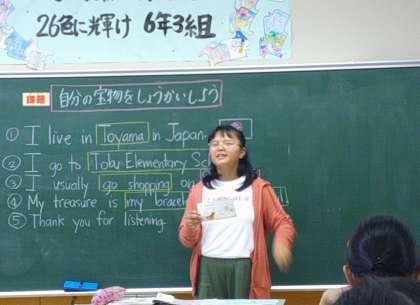 26色に輝け 6年3組
課題 自分の宝物をしょうかいしよう
① I live in Toyama in Japan.
② I go to Tobu Elementary
③ I usually go shopping on
④ My treasure is my
⑤ Thank you for listening.